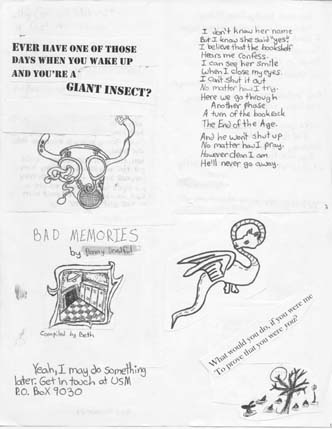 EVER HAVE ONE OF THOSE
DAYS WHEN YOU WAKE UP
AND YOU'RE A
GIANT INSECT?
I don't know her name
But I know she said "yes."
I believe that the bookshelf
Hears me confess.
I can see her smile
When I close my eyes.
I can't shut it out
No matter how I try.
Here we go through
Another phase
A turn of the bookrack
The End of the Age.
And he won't shut up
No matter how I pray.
However clean I am
He'll never go away.
BAD MEMORIES
by Danny
Compiled by Beth
Yeah, I may do something
later. Get in touch at USM
P.O. Box 9030
What would you do, if you were me
To prove that you were you?